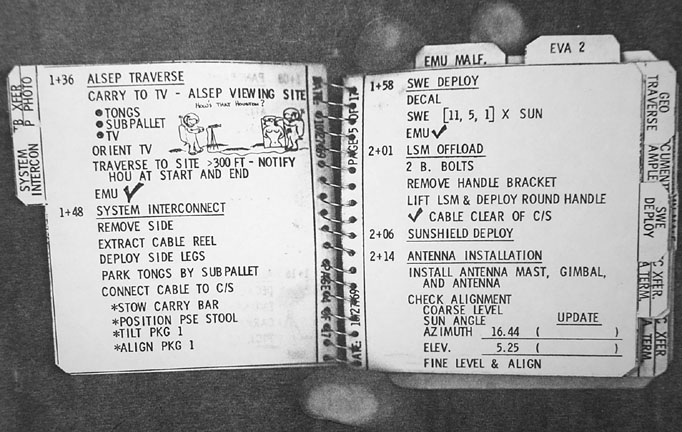 EMU MALF.
EVA 2
SYSTEM
INTERCON
B XFER
P PHOTO
1+36 ALSEP TRAVERSE
CARRY TO TV - ALSEP VIEWING SITE
HOW'S THAT HOUSTON?
TONGS
SUBPALLET
TV
ORIENT TV
TRAVERSE TO SITE >300 FT - NOTIFY
HOU AT START AND END
EMU ✓
1+48 SYSTEM INTERCONNECT
REMOVE SIDE
EXTRACT CABLE REEL
DEPLOY SIDE LEGS
PARK TONGS BY SUBPALLET
CONNECT CABLE TO C/S
*STOW CARRY BAR
*POSITION PSE STOOL
*TILT PKG 1
*ALIGN PKG 1
1+58 SWE DEPLOY
DECAL
SWE [11, 5, 1] X SUN
EMU ✓
2+01 LSM OFFLOAD
2 B. BOLTS
REMOVE HANDLE BRACKET
LIFT LSM & DEPLOY ROUND HANDLE
✓ CABLE CLEAR OF C/S
2+06 SUNSHIELD DEPLOY
2+14 ANTENNA INSTALLATION
INSTALL ANTENNA MAST, GIMBAL,
AND ANTENNA
CHECK ALIGNMENT
COARSE LEVEL
SUN ANGLE UPDATE
AZIMUTH 16.44 ( )
ELEV. 5.25 ( )
FINE LEVEL & ALIGN
GEO
TRAVERSE
SWE
DEPLOY
XFER
A TERM.
XFER
A TERM.